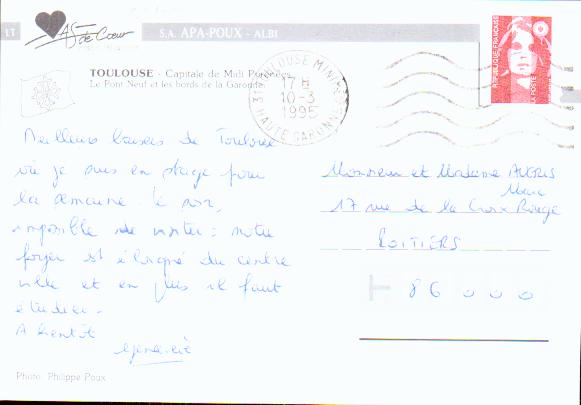 LT
As de Cœur
S.A. APA-POUX - ALBI
TOULOUSE - Capitale de Midi Pyrénées
Le Pont Neuf et les bords de la Garonne
31 TOULOUSE MINIMES
17 H
10-3
1995
HAUTE GARONNE
REPUBLIQUE FRANÇAISE
LA POSTE
Meilleurs baisers de Toulouse
où je suis en stage pour
la semaine. Le soir,
impossible de visiter : notre
foyer est éloigné du centre
ville et en plus il faut
étudier.
A bientôt
Geneviève
Monsieur et Madame
Marc
17 rue de la Croix Rouge
POITIERS
86 000
Photo: Philippe Poux